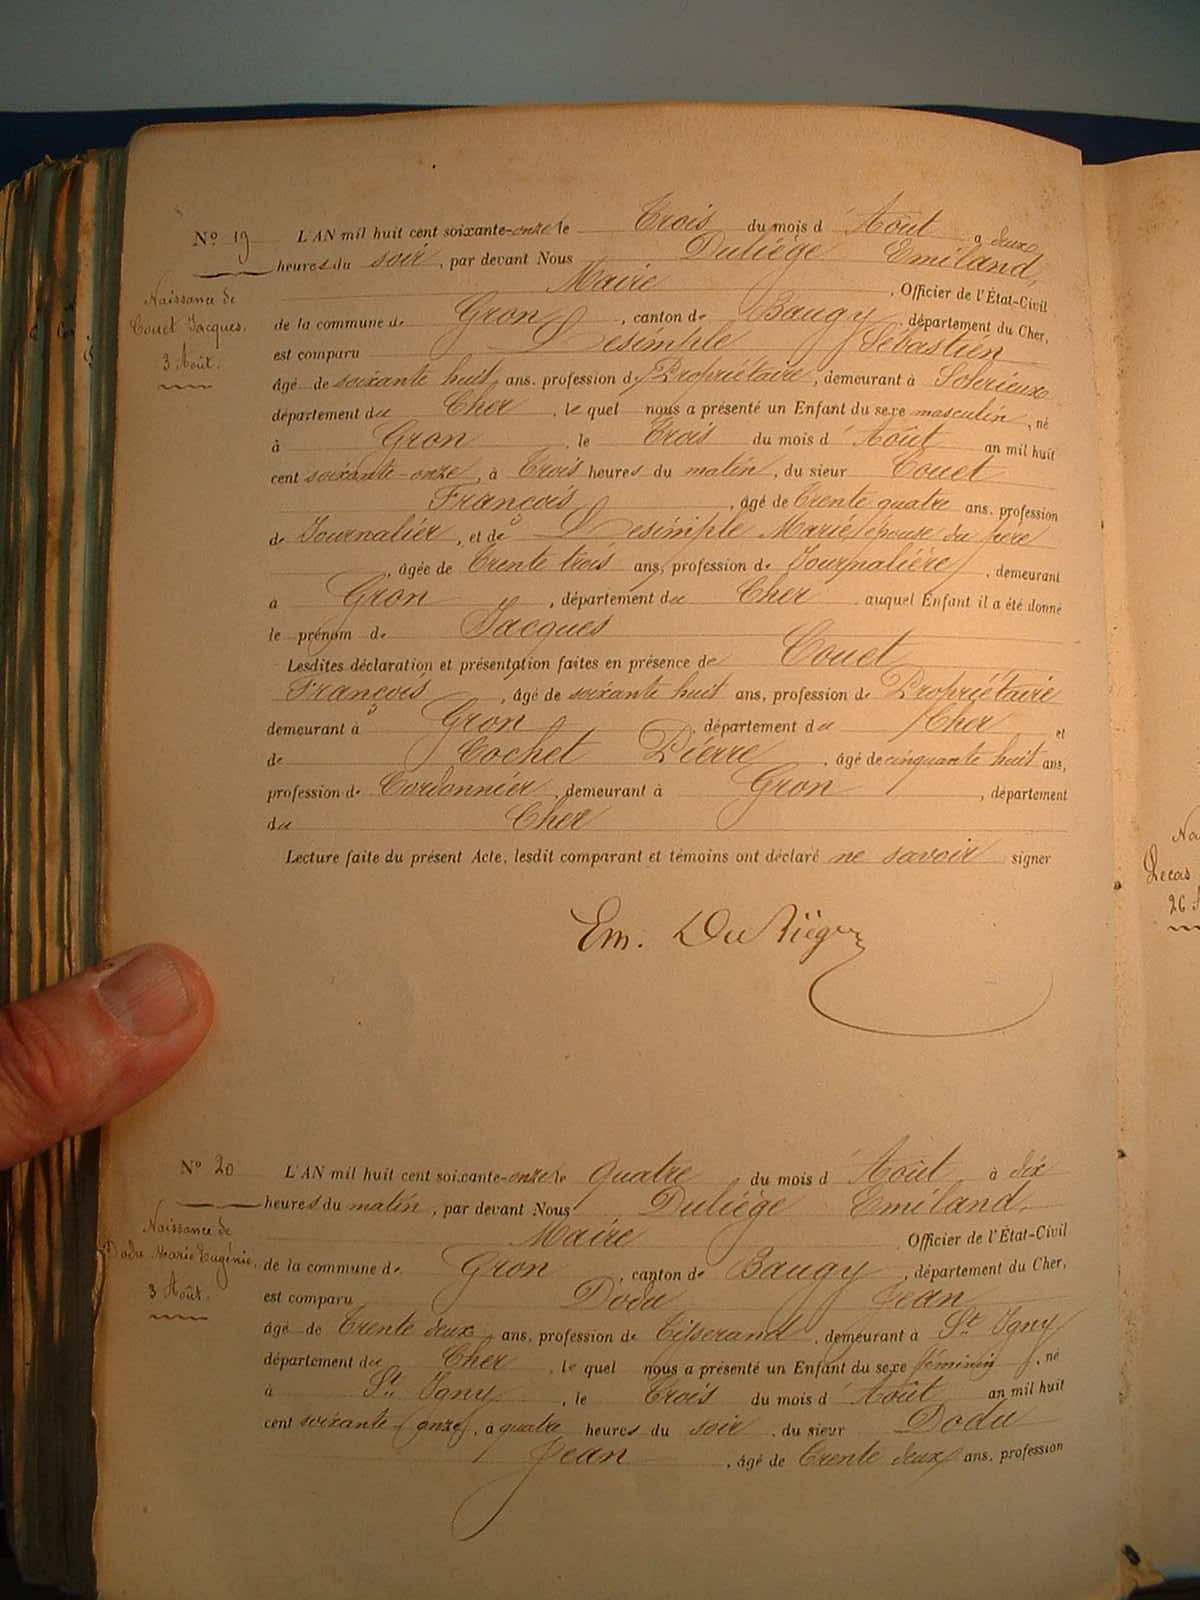 Nº 19 L'AN mil huit cent soixante-onze le Trois du mois d'Août a deux
heures du soir, par devant Nous Duliège Emiland,
Maire, Officier de l'État-Civil
Naissance de
Couet Jacques.
3 Août.
de la commune de Gron, canton de Baugy, département du Cher,
est comparu Desimple Sébastien
âgé de soixante huit ans, profession de Propriétaire, demeurant à
département du Cher, le quel nous a présenté un Enfant du sexe masculin, né
à Gron, le Trois du mois d'Août an mil huit
cent soixante-onze, à Trois heures du matin, du sieur Couet
François, âgé de Trente quatre ans, profession
de Journalier, et de Desimple Marie, épouse du père
, âgée de Trente trois ans, profession de Journalière, demeurant
à Gron, département du Cher auquel Enfant il a été donné
le prénom de Jacques
Lesdites déclaration et présentation faites en présence de Couet
François, âgé de soixante huit ans, profession de Propriétaire
demeurant à Gron département du Cher et
de Cochet Pierre, âgé de cinquante huit ans,
profession de Cordonnier, demeurant à Gron, département
du Cher
Lecture faite du présent Acte, lesdit comparant et témoins ont déclaré ne savoir signer
Em. Duliège
Nº 20 L'AN mil huit cent soixante-onze le quatre du mois d'Août à dix
heures du matin, par devant Nous Duliège Emiland,
Maire Officier de l'État-Civil
Naissance de
Dodu Marie Eugénie.
3 Août.
de la commune de Gron, canton de Baugy, département du Cher,
est comparu Dodu Jean
âgé de Trente deux ans, profession de Tisserand, demeurant à St Igny
département du Cher, le quel nous a présenté un Enfant du sexe féminin, né
à St Igny, le Trois du mois d'Août an mil huit
cent soixante onze, à quatre heures du soir, du sieur Dodu
Jean, âgé de Trente deux ans, profession
Lecas
26